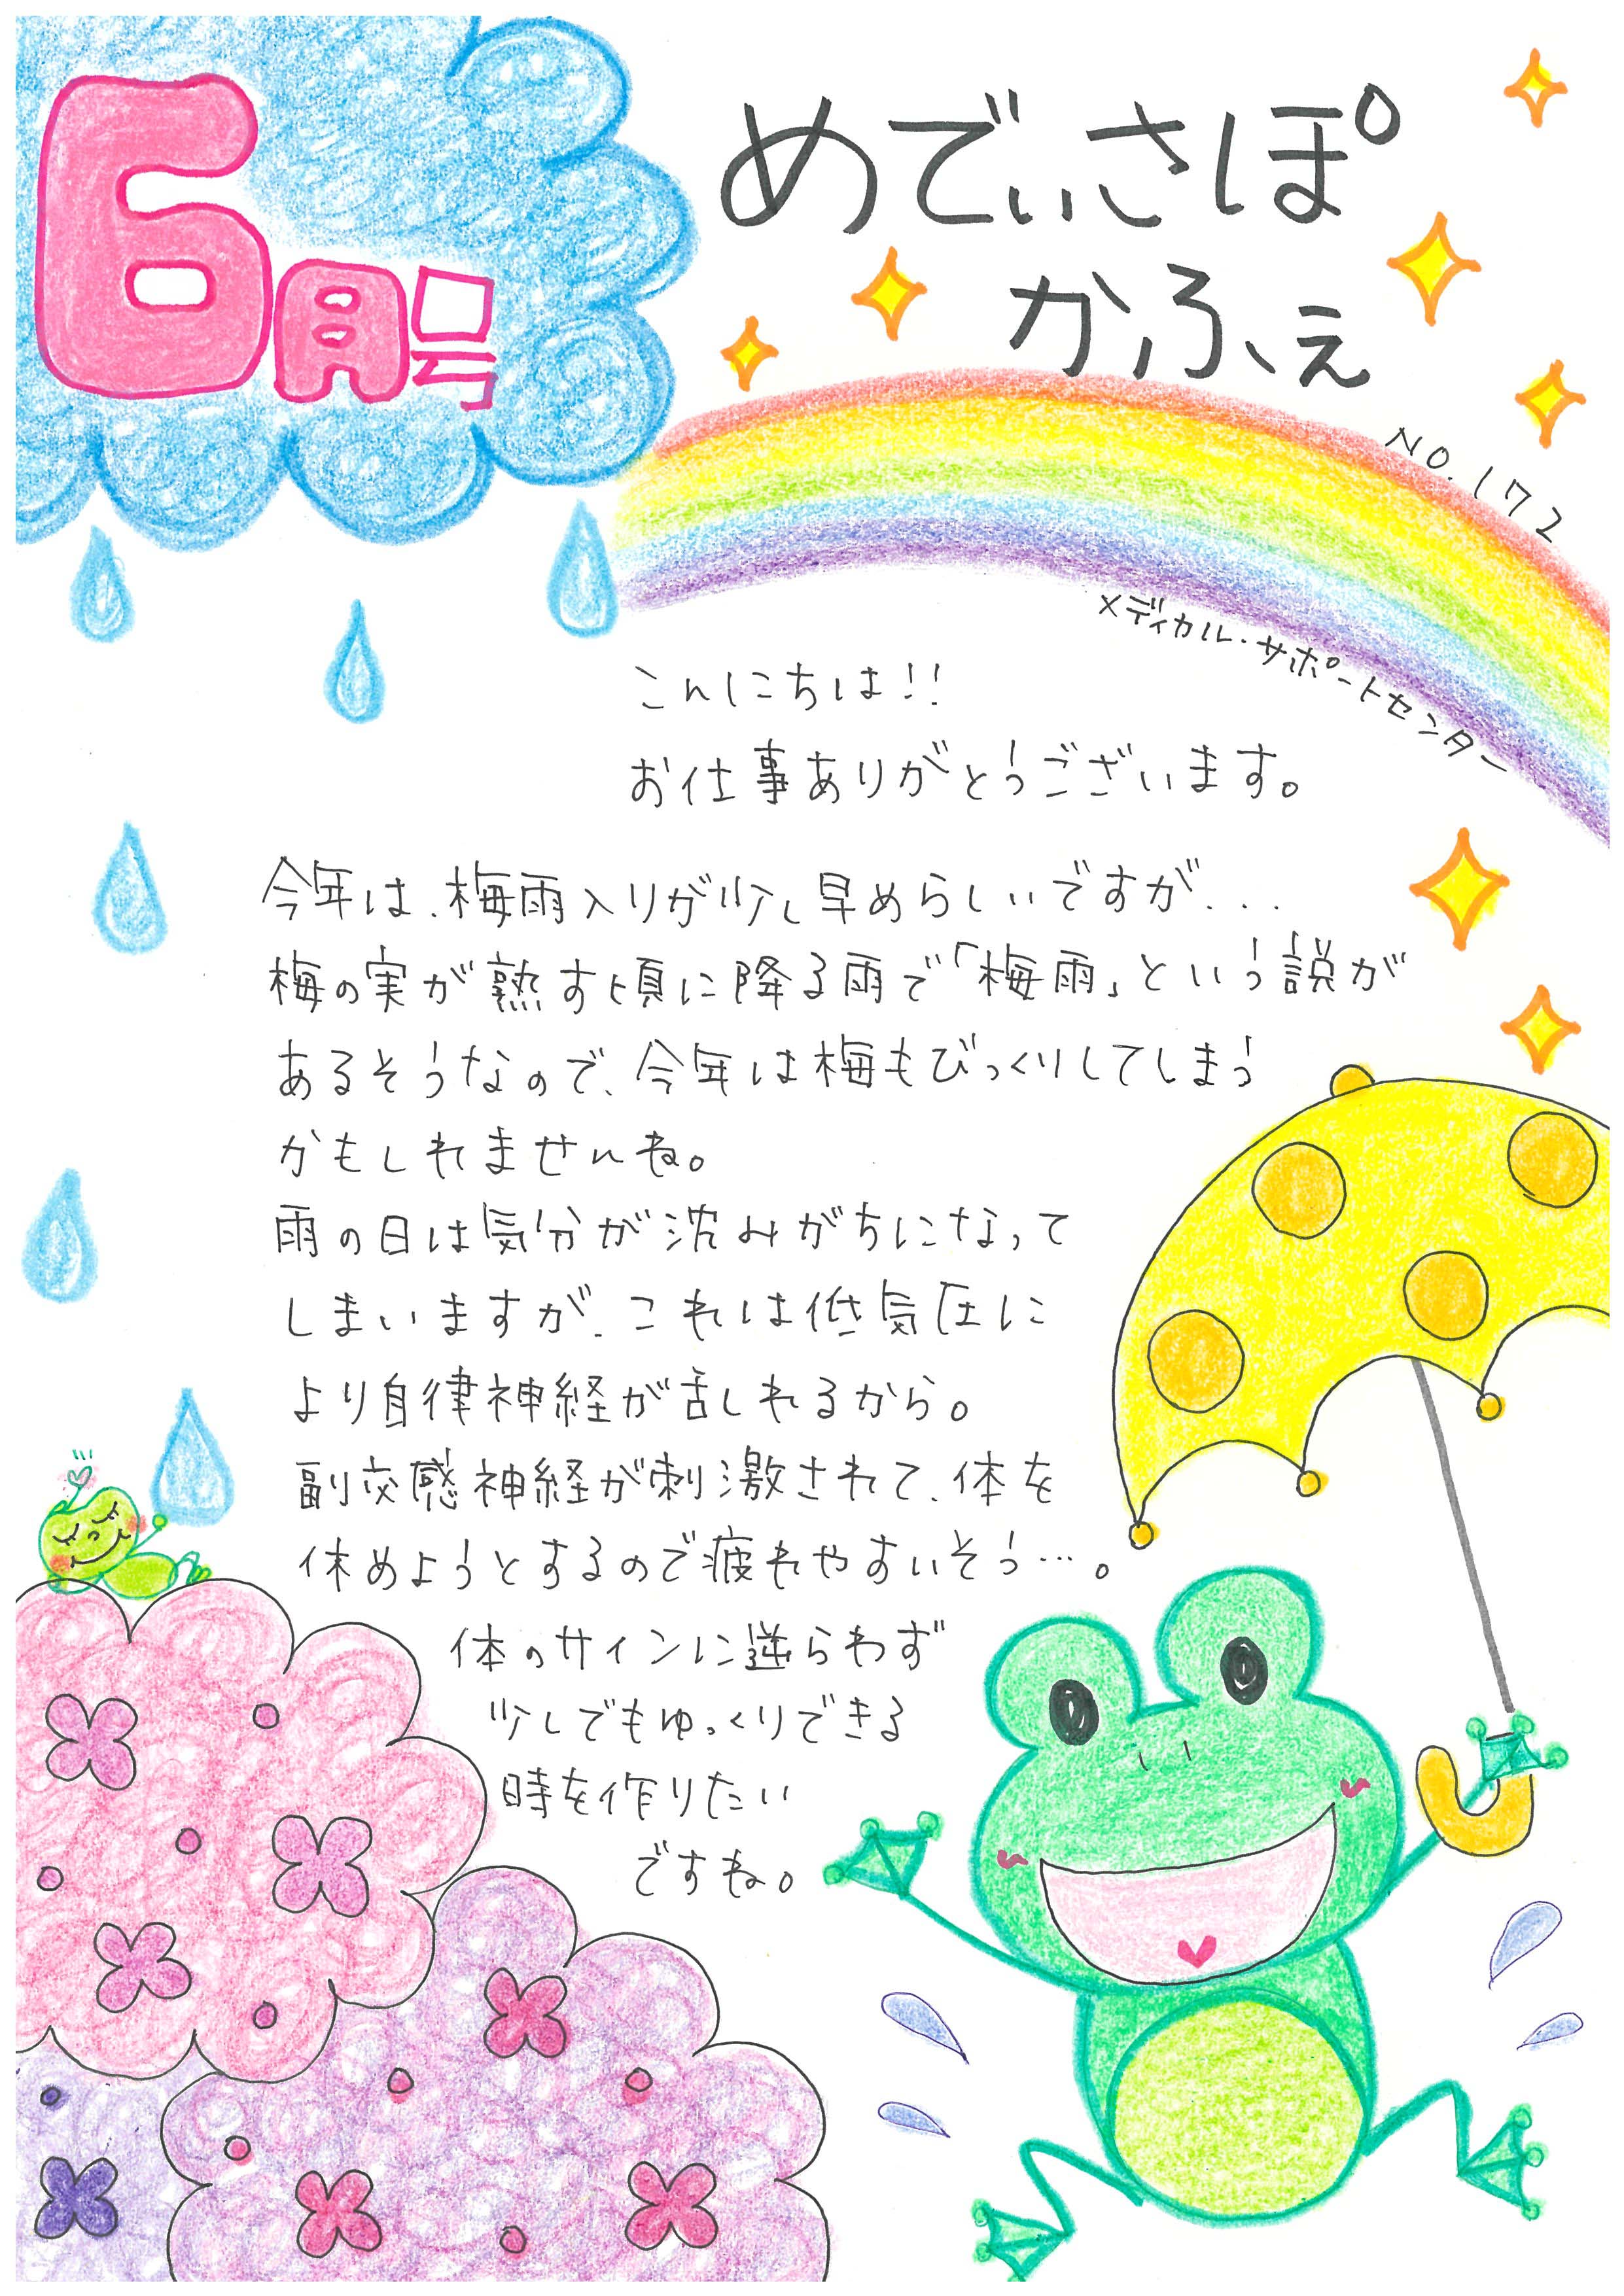 6月号
めでぃさぽ
かふぇ
NO.172
メディカル・サポートセンター
こんにちは!!
お仕事ありがとうございます。
今年は、梅雨入りが少し早めらしいですが...
梅の実が熟す頃に降る雨で「梅雨」という説が
あるそうなので、今年は梅もびっくりしてしまう
かもしれませんね。
雨の日は気分が沈みがちになって
しまいますが、これは低気圧に
より自律神経が乱れるから。
副交感神経が刺激されて、体を
休めようとするので疲れやすいそう…。
体のサインに逆らわず
少しでもゆっくりできる
時を作りたい
ですね。